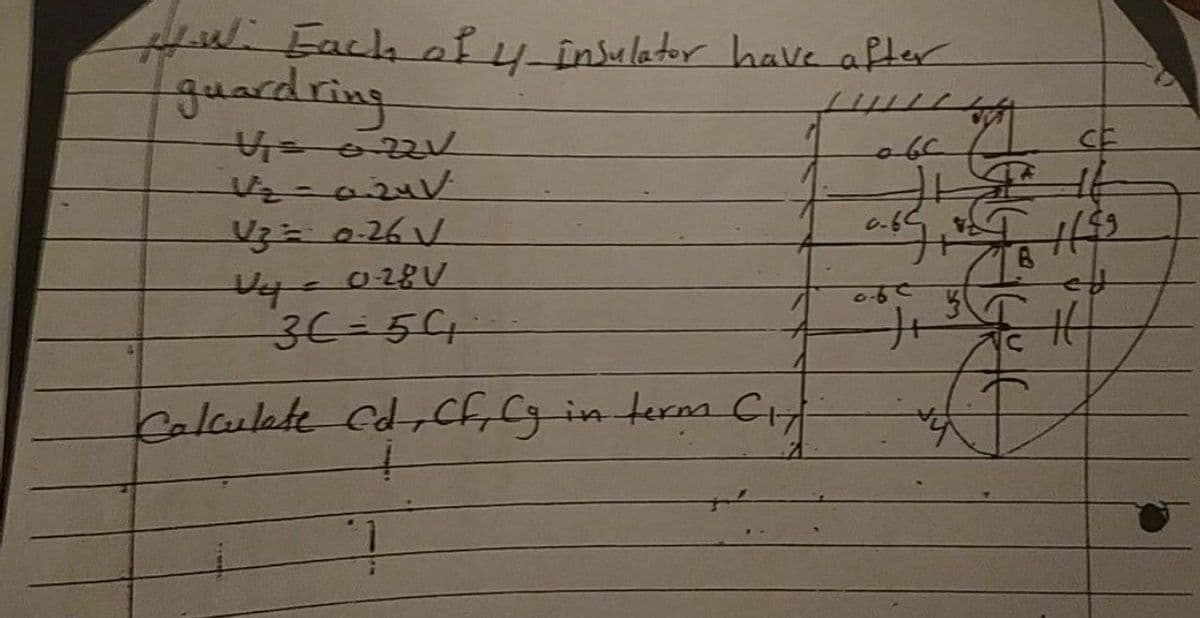 H.W: Each of 4 insulator have after
guard ring
V1 = 0.22V
V2 = 0.24V
V3 = 0.26V
V4 = 0.28V
3C = 5C1
Calculate Cd, CF, Cg in term C1
0.6C
CF
A
0.6C
V2
Cg
B
0.6C
V3
cd
C
V4